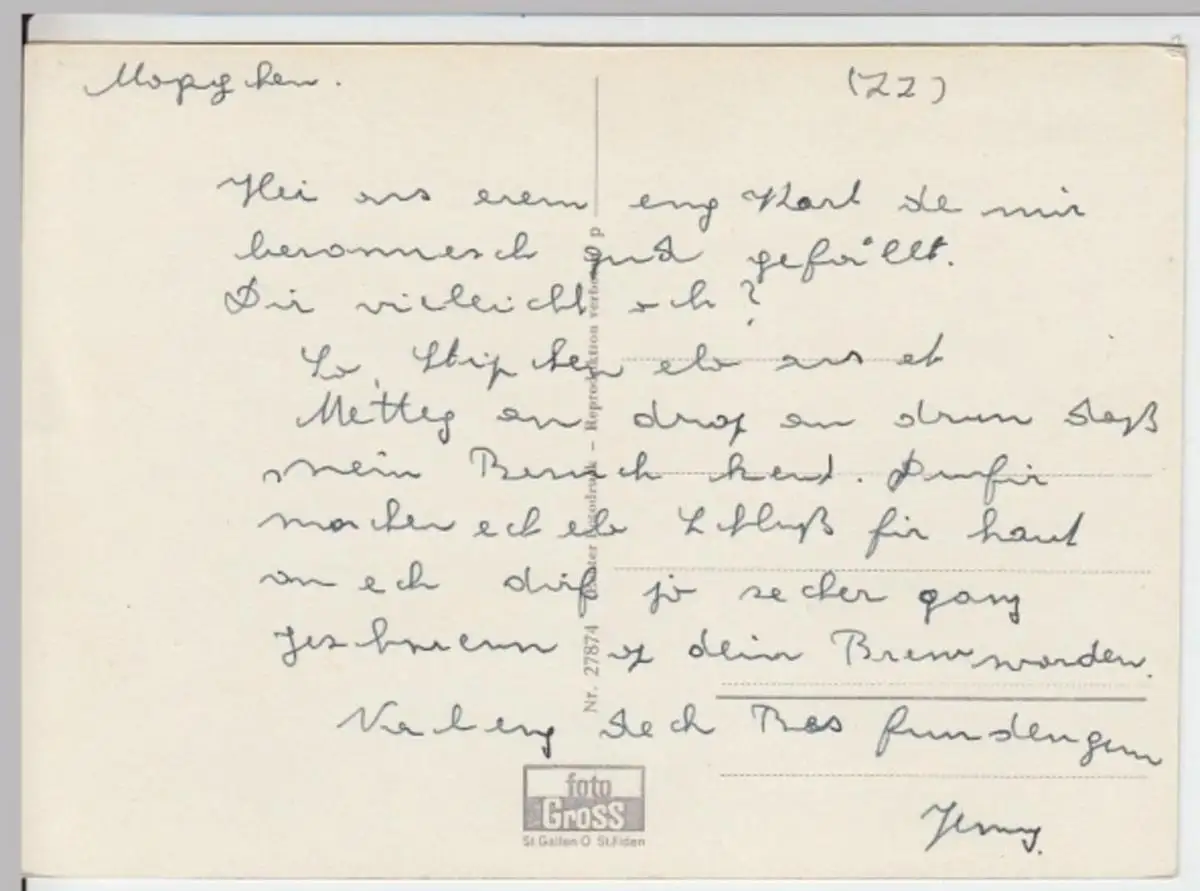 Mopsy chen.
(ZZ)
Hei ass erem eng Kart de mir
besonnesch gud gefällt.
Dir vielleicht och?
So, Stipchen elo ass et
Mettog an drop an drun daß
mein Besuch kent. Dunfir
machen ech elo Schluß fir haut
an ech drif jo secher gang
geschwenn op dein Breiw worden.
Verleng dech Bas
Jenny.
Nr. 27874
Reproduktion verboten
foto
Gross
St.Gallen O St.Fiden